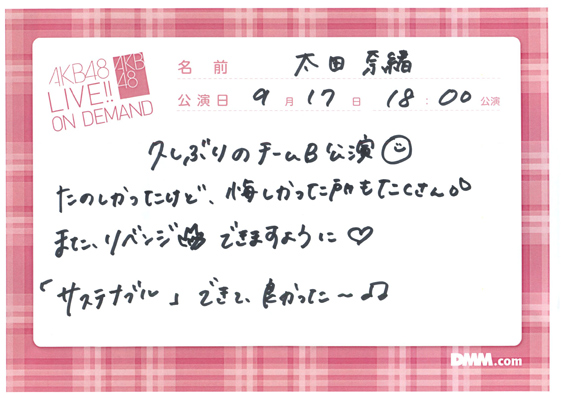 AKB48
AKB
48
LIVE!!
ON DEMAND
名前 太田 奈緒
公演日 9月17日 18:00公演
久しぶりのチームB公演
たのしかったけど、悔しかった所もたくさん
また、リベンジ できますように♡
「サステナブル」できて、良かった〜♫
DMM.com